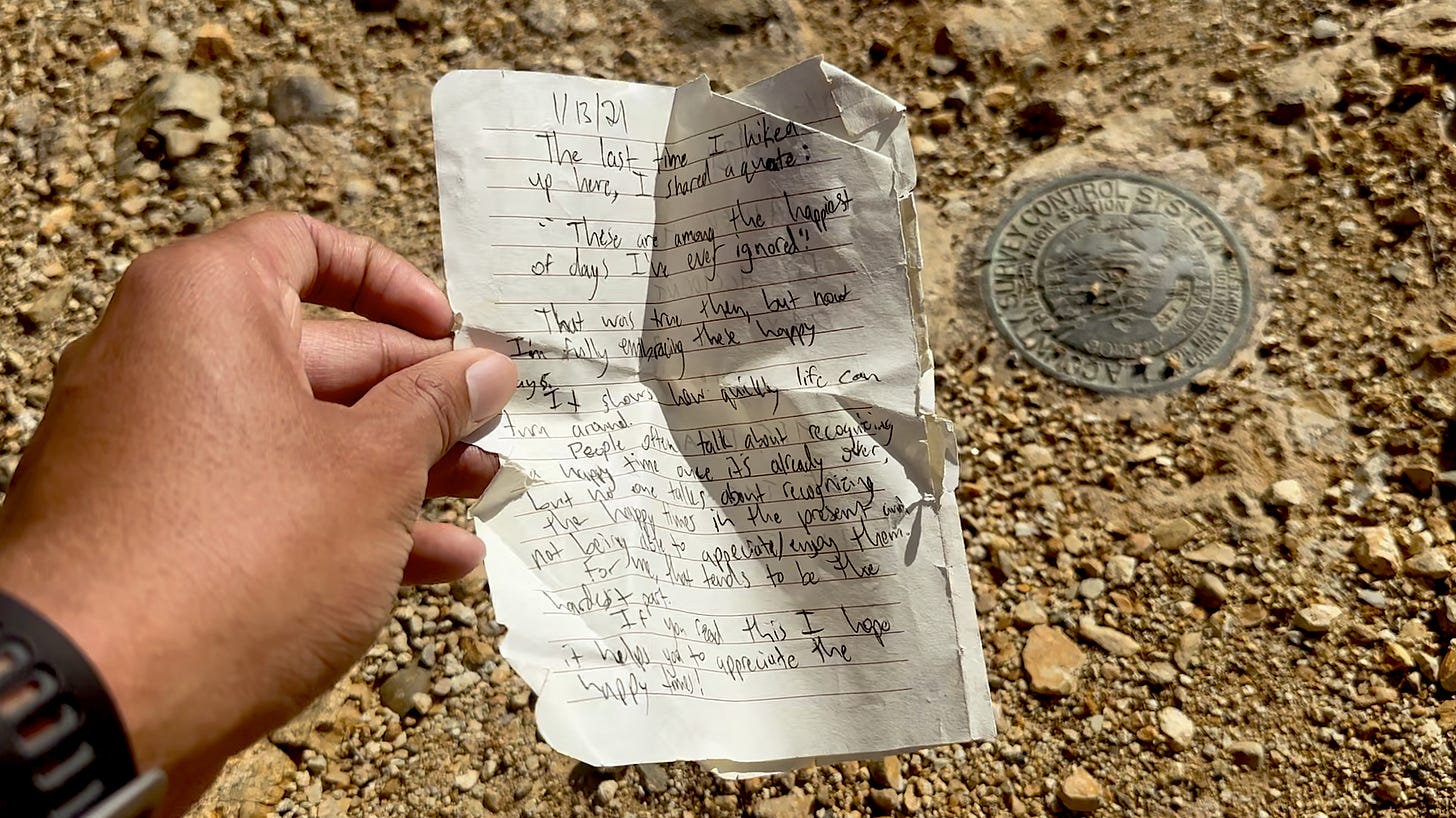 1/13/21
The last time I hiked
up here, I shared a quote:
"These are among the happiest
of days I've ever ignored."
That was true then, but now
I'm fully embracing these happy
ays.
It shows how quickly life can
turn around.
People often talk about recognizing
a happy time once it's already over,
but no one talks about recognizing
the happy times in the present and
not being able to appreciate/enjoy them.
For me, that tends to be the
hardest part.
If you read this I hope
it helps you to appreciate the
happy times!
SURVEY CONTROL SYSTEM
STATION
COUNTY